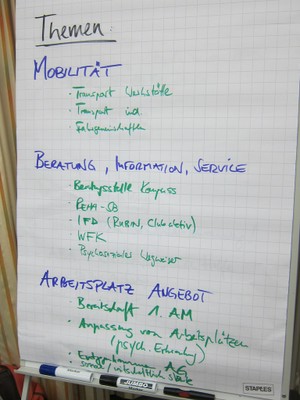 Themen:
MOBILITÄT
· Transport Werkstätte
· Transport ind.
· Fahrgemeinschaften
BERATUNG, INFORMATION, SERVICE
· Beratungsstelle Kompass
· REHA-SB
· IFD (RUBIN, Club aktiv)
· WFK
· Psychosozialer Wegweiser
ARBEITSPLATZ ANGEBOT
· Bereitschaft 1. AM
· Anpassung von Arbeitsplätzen
(psych. Erkrankg)
AG
STAPLES